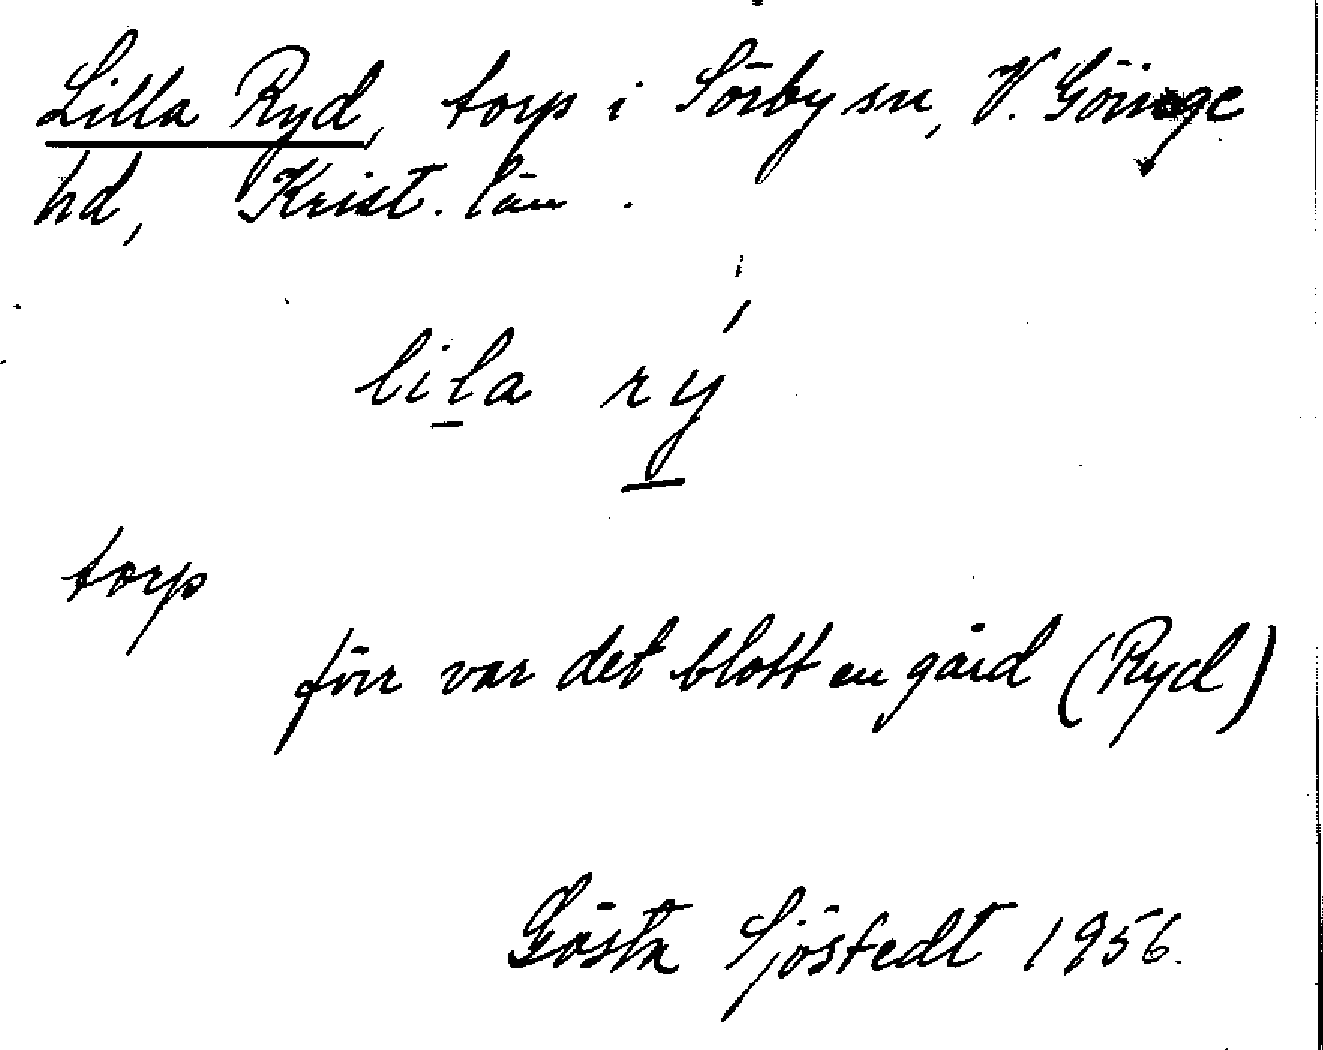 Lilla Ryd, torp i Sörby sn, V. Göinge
hd, Krist. län.
lila rý
torp
förr var det blott en gård (Ryd)
Gösta Sjöstedt 1956.